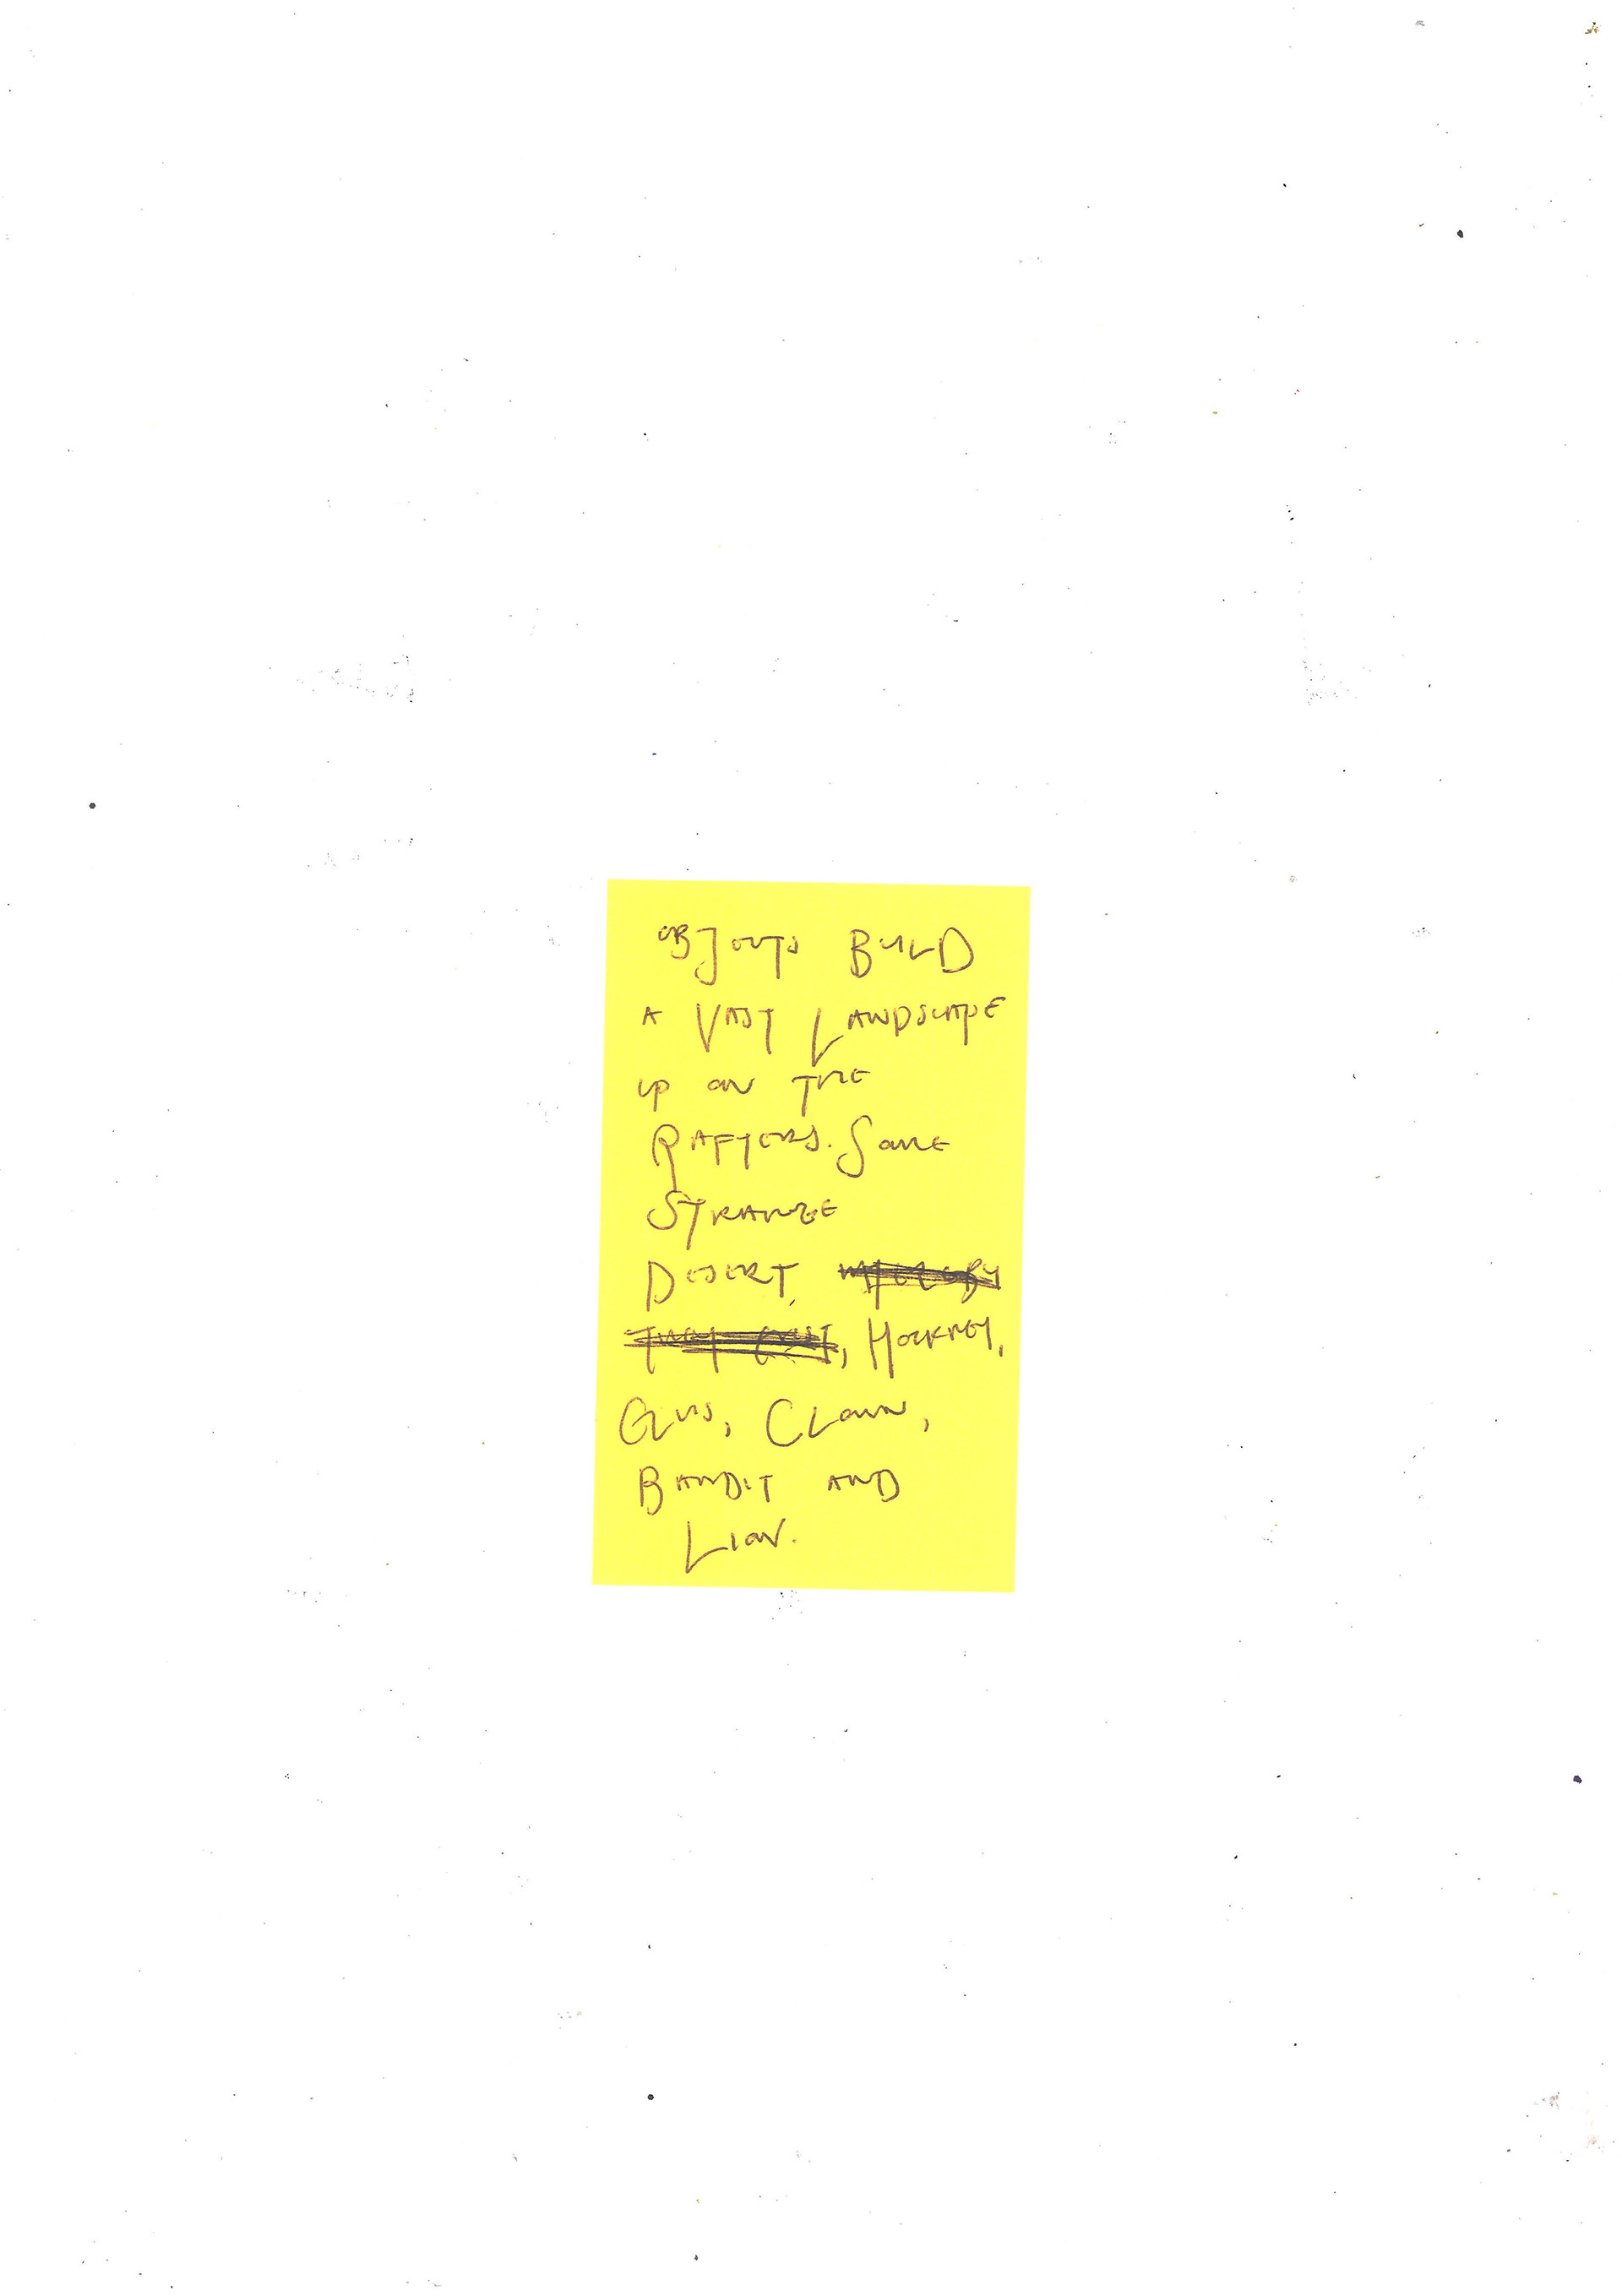 OBJECTS BUILD
A VAST LANDSCAPE
UP ON THE
RAFTERS. SOME
STRANGE
DESERT,
, HOCKNEY,
CLOWN,
BANDIT AND
LION.